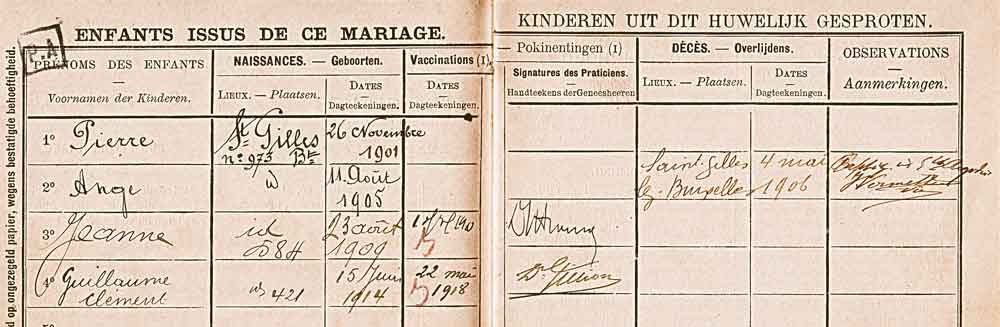 P.A
ENFANTS ISSUS DE CE MARIAGE.
KINDEREN UIT DIT HUWELIJK GESPROTEN.
PRÉNOMS DES ENFANTS
—
Voornamen der Kinderen.
NAISSANCES. — Geboorten.
LIEUX. — Plaatsen.
DATES
—
Dagteekeningen.
Vaccinations (I)
DATES
—
Dagteekeningen.
— Pokinentingen (I)
Signatures des Praticiens.
—
Handteekens der Geneesheeren
DÉCÈS. — Overlijdens.
LIEUX. — Plaatsen.
DATES
—
Dagteekeningen.
OBSERVATIONS
—
Aanmerkingen.
1º Pierre
St Gilles
nº 973 Bte
26 Novembre
1901
2º Ange
id
11 Août
1905
Saint Gilles
lz. Bruxelles
4 mai
1906
3º Jeanne
id
584
23 août
1909
4º Guillaume
Clément
id 421
15 Juin
1914
22 mai
1918
Dr
d op ongezegeld papier, wegens bestatigde behoeftigheid.